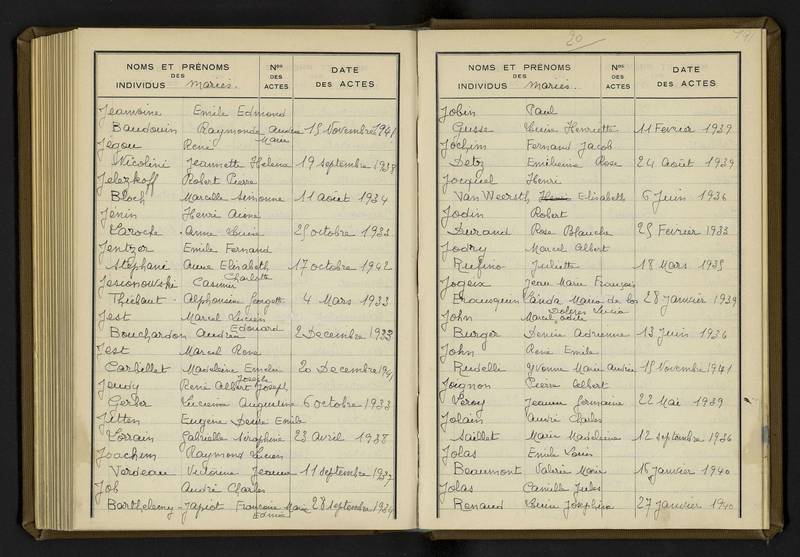 NOMS ET PRÉNOMS DES INDIVIDUS Mariés. Nos DES ACTES DATE DES ACTES
Jeanvoine Emile Edmond
Baudouin Raymonde Andrée 15 Novembre 1941
Marie
Jegou René
Nicolini Jeannette Helene 19 septembre 1938
Jelezkoff Robert Pierre
Bloch Marcelle Simonne 11 août 1934
Jénin Henri
Laroche Anne Lucie 25 octobre 1933
Jentzer Emile Fernand
Stéphani Anne Elisabeth 17 octobre 1942
Charlotte
Jesionowski Casimir
Thiélaut Alphonsine Georgette 4 Mars 1933
Jest Marcel Lucien
Edouard
Bouchardon Andrée 2 Decembre 1933
Jest Marcel Rose
Carbillet Madeleine 20 Decembre 1941
Joseph
Jeudy René Albert Joseph
Gerber Lucienne Augustine 6 octobre 1933
Jitten Eugene Desire Emile
Lorrain Gabrielle Séraphine 23 avril 1938
Joachim Raymond Lucien
Verdeau Victorine Jeanne 11 septembre 1937
Job André Charles
Barthelemy - Japiot Françoise Marie 28 septembre 1934
20
191
NOMS ET PRÉNOMS DES INDIVIDUS Mariés. Nos DES ACTES DATE DES ACTES
Jobin Paul
Gusse Lucie Henriette 11 Fevrier 1939
Jochim Fernand Jacob
Detz Emilienne Rose 24 Août 1939
Jocquel Henri
Van Weersth Elisabeth 6 Juin 1936
Jodin Robert
Durand Rose Blanche 25 Fevrier 1933
Jodry Marcel Albert
Rufino Juliette 18 Mars 1935
Jogeix Jean Marie François
Linda Maria de los 28 janvier 1939
Dolores Lucia
John Marcel
Burger Denise Adrienne 13 juin 1936
John René Emile
Rudelle Yvonne Marie Andrée 15 Novembre 1941
Joignon Pierre Albert
Leroy Jeanne Germaine 22 Mai 1939
Jolain André Charles
Saillet Marie Madeleine 12 septembre 1936
Jolas Emile Louis
Beaumont Valerie Marie 16 janvier 1940
Jolas Camille Jules
Renaud Lucie Joséphine 27 janvier 1940